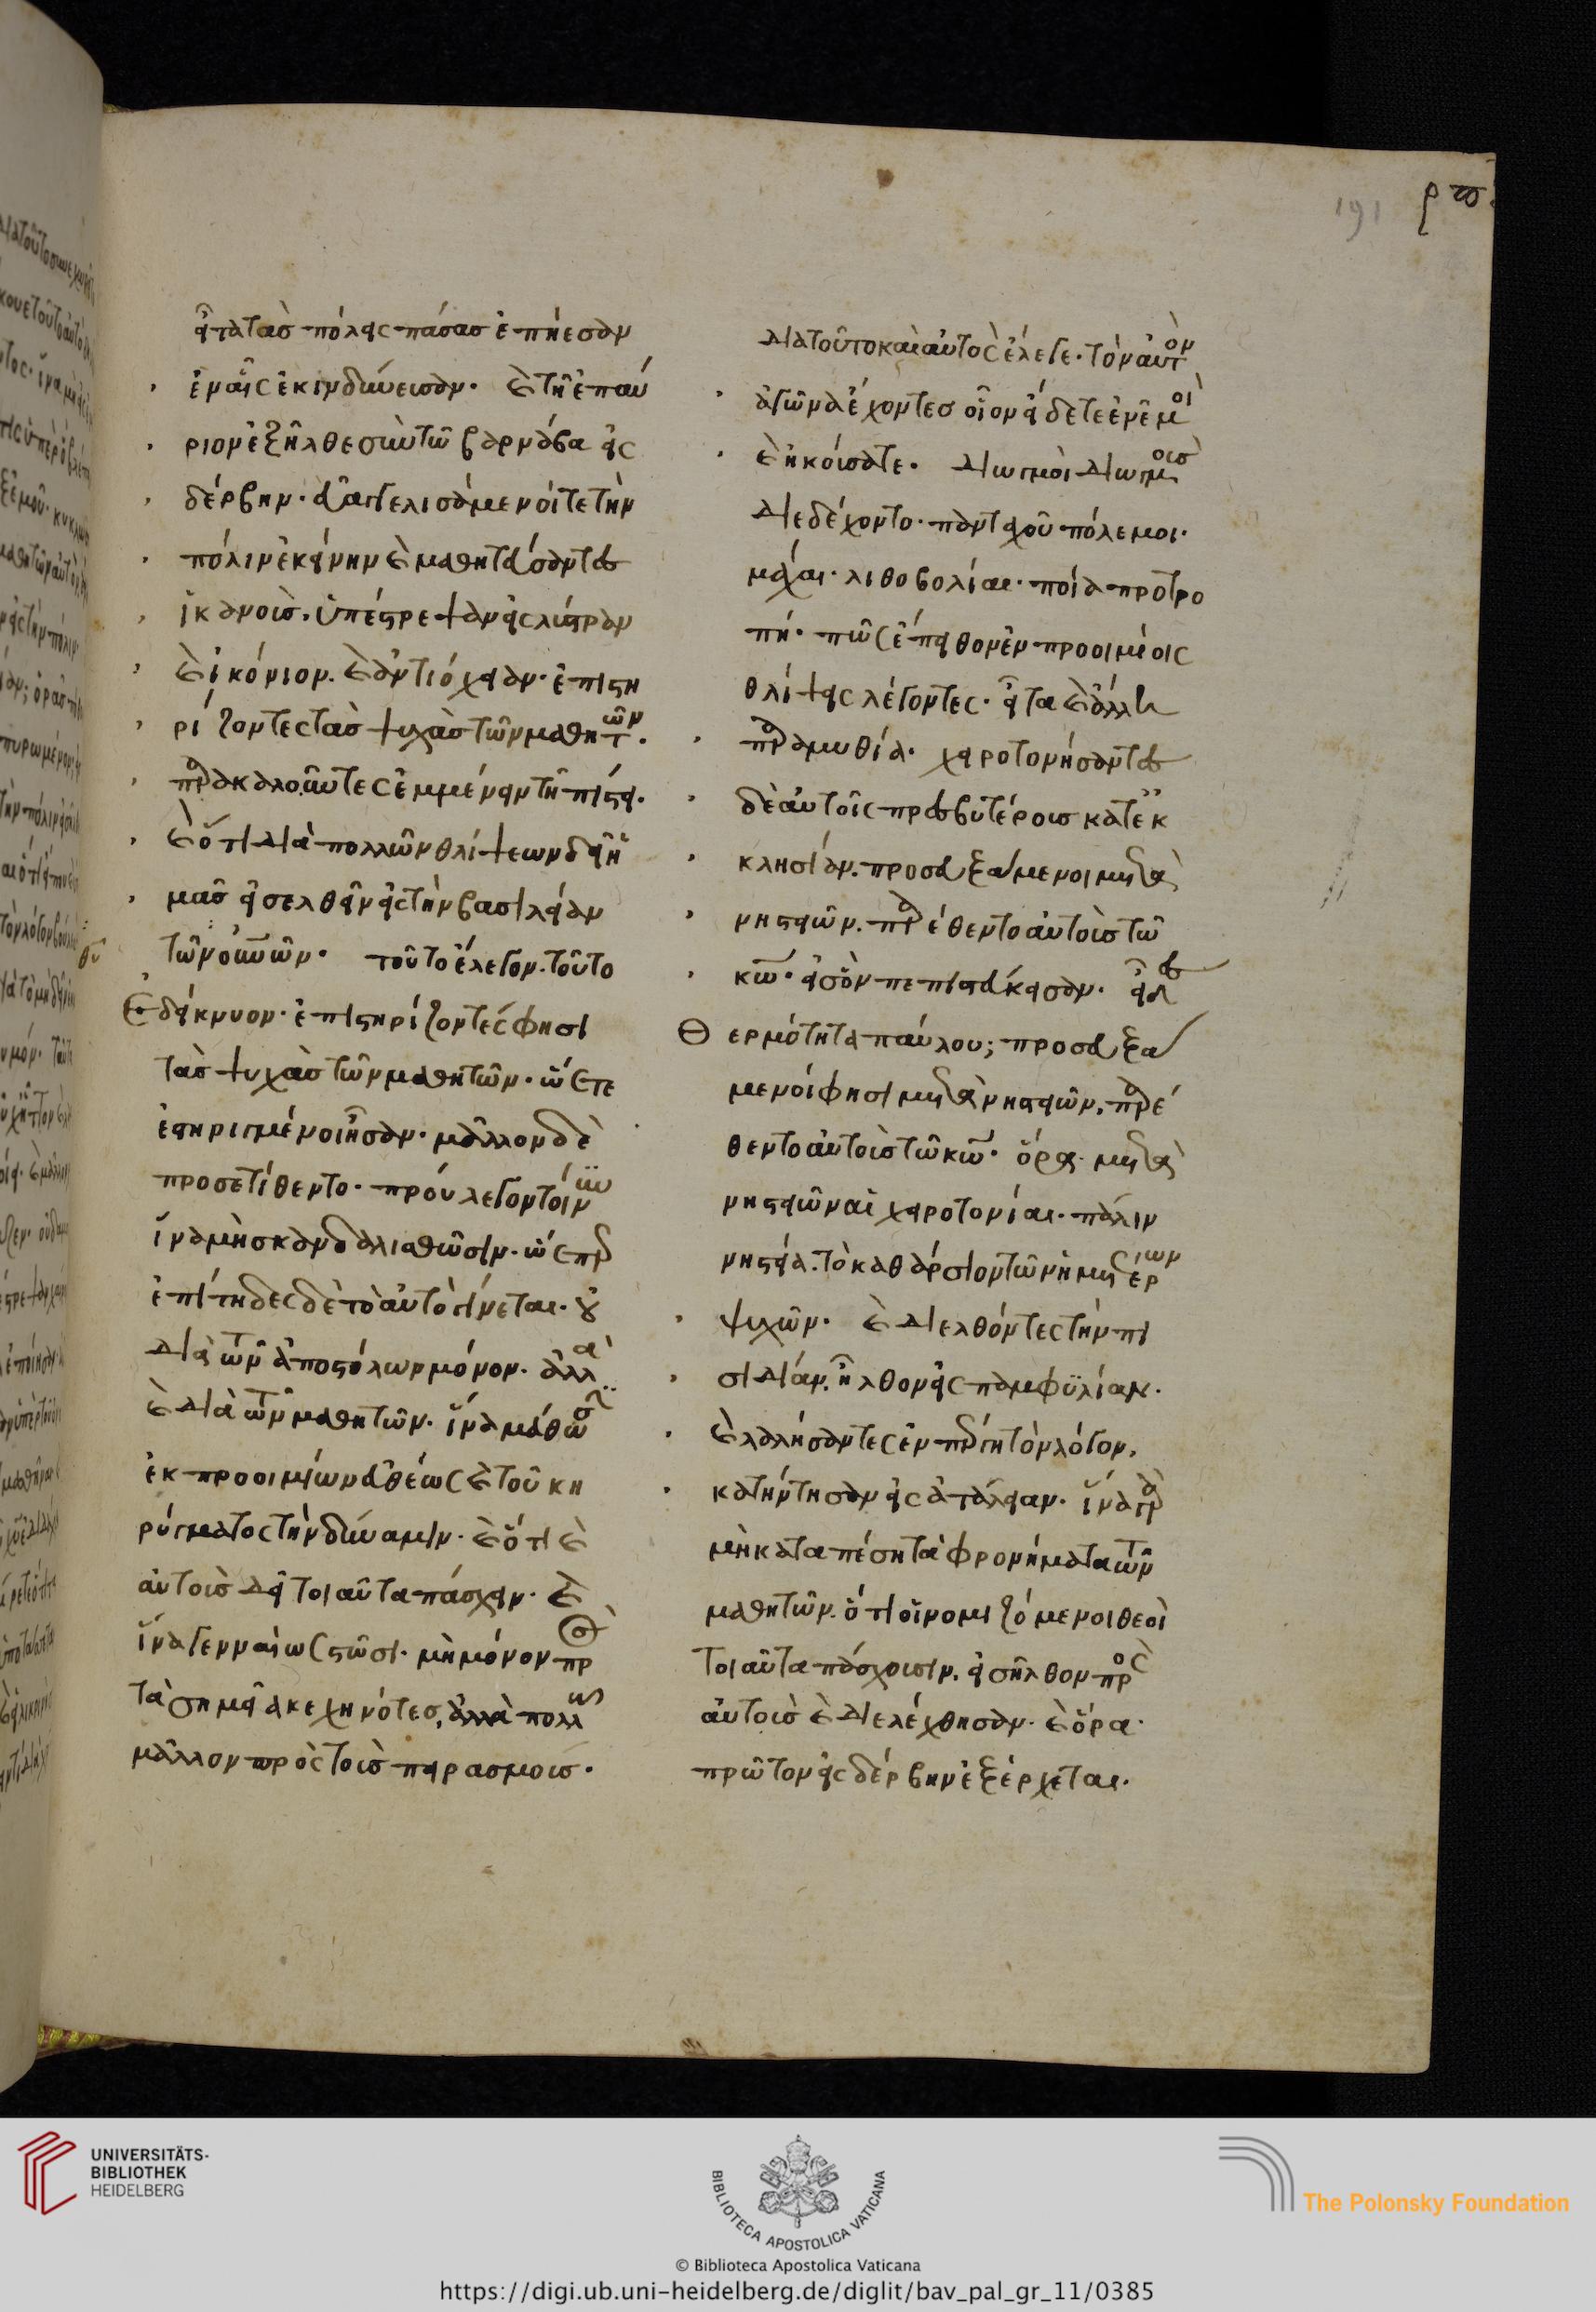 191 ρϟα
εἶτα τὰς πόλεις πάσας ἐπήεσαν
ἐν αἷς ἐκινδύνευσαν. καὶ τῇ ἐπαύ
ριον ἐξῆλθε σὺν τῷ βαρνάβα εἰς
δέρβην. εὐαγγελισάμενοί τε τὴν
πόλιν ἐκείνην καὶ μαθητεύσαντες
ἱκανούς. ὑπέστρεψαν εἰς λύστραν
καὶ ἰκόνιον. καὶ ἀντιόχειαν. ἐπιστη
ρίζοντες τὰς ψυχὰς τῶν μαθητῶν.
παρακαλοῦντες ἐμμένειν τῇ πίστει.
καὶ ὅτι διὰ πολλῶν θλίψεων δεῖ ἡ
μᾶς εἰσελθεῖν εἰς τὴν βασιλείαν
θῦ τῶν οὐνῶν. τοῦτο ἔλεγον. τοῦτο
ἐδείκνυον. ἐπιστηρίζοντές φησι
τὰς ψυχὰς τῶν μαθητῶν. ὥστε
ἐστηριγμένοι ἦσαν. μᾶλλον δὲ
προσετίθεντο. προύλεγον τοίνυν
ἵνα μὴ σκανδαλισθῶσιν. ὥσπερ
ἐπίτηδες δὲ τὸ αὐτὸ γίνεται. οὐ
διὰ τῶν ἀποστόλων μόνον. ἀλλὰ
καὶ διὰ τῶν μαθητῶν. ἵνα μάθωσιν
ἐκ προοιμίων εὐθέως καὶ τοῦ κη
ρύγματος τὴν δύναμιν. καὶ ὅτι καὶ
αὐτοὺς δεῖ τοιαῦτα πάσχειν. καὶ
ἵνα γενναίως στῶσι. μὴ μόνον πρὸς
τὰ σημεῖα κεχηνότες, ἀλλὰ πολλῷ
μᾶλλον πρὸς τοὺς πειρασμούς.
διὰ τοῦτο καὶ αὐτὸς ἔλεγε. τὸν αὐτὸν
ἀγῶνα ἔχοντες οἷον εἴδετε ἐν ἐμοὶ
καὶ ἠκούσατε. διωγμοὶ διωγμοὺς
διεδέχοντο. πανταχοῦ πόλεμοι.
μάχαι. λιθοβολίαι. ποία προτρο
πή. πῶς ἔπειθον ἐν προοιμίοις
θλίψεις λέγοντες. εἶτα καὶ ἄλλη
παραμυθία. χειροτονήσαντες
δὲ αὐτοῖς πρεσβυτέρους κατ' ἐκ
κλησίαν. προσευξάμενοι μετὰ
νηστειῶν. παρέθεντο αὐτοὺς τῶ
κῶ. εἰς ὃν πεπιστεύκεισαν. εἶδες
θερμότητα παύλου; προσευξά
μενοί φησι μετὰ νηστειῶν, παρέ
θεντο αὐτοὺς τῶ κῶ. ὅρα. μετὰ
νηστειῶν αἱ χειροτονίαι. πάλιν
νηστεία. τὸ καθάρσιον τῶν ἡμετέρων
ψυχῶν. καὶ διελθόντες τὴν πι
σιδίαν. ἦλθον εἰς παμφϋλίαν.
καὶ λαλήσαντες ἐν πέργη τὸν λόγον,
κατήντησαν εἰς ἀτάλειαν. ἵνα γὰρ
μὴ καταπέση τὰ φρονήματα τῶν
μαθητῶν. ὅτι οἱ νομιζόμενοι θεοὶ
τοιαῦτα πάσχουσιν. εἰσῆλθον πρὸς
αὐτοὺς καὶ διελέχθησαν. καὶ ὅρα.
πρῶτον εἰς δέρβην ἐξέρχεται.
UNIVERSITÄTS-
BIBLIOTHEK
HEIDELBERG
BIBLIOTECA APOSTOLICA VATICANA
© Biblioteca Apostolica Vaticana
The Polonsky Foundation
https://digi.ub.uni-heidelberg.de/diglit/bav_pal_gr_11/0385